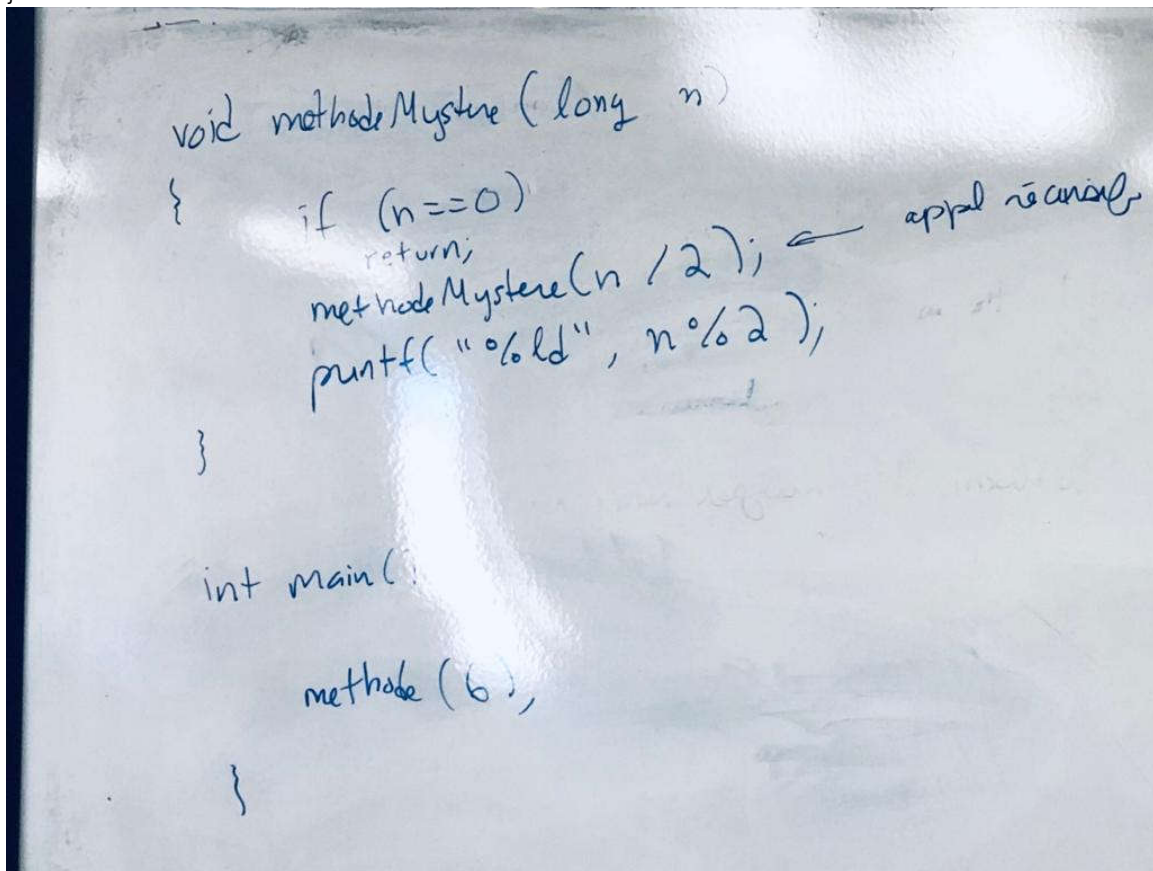 void methodeMystere (long n)
{ if (n==0)
return;
methodeMystere(n /2); ← appel récursif
printf("%ld", n%2);
}
int main(
methode (6),
}